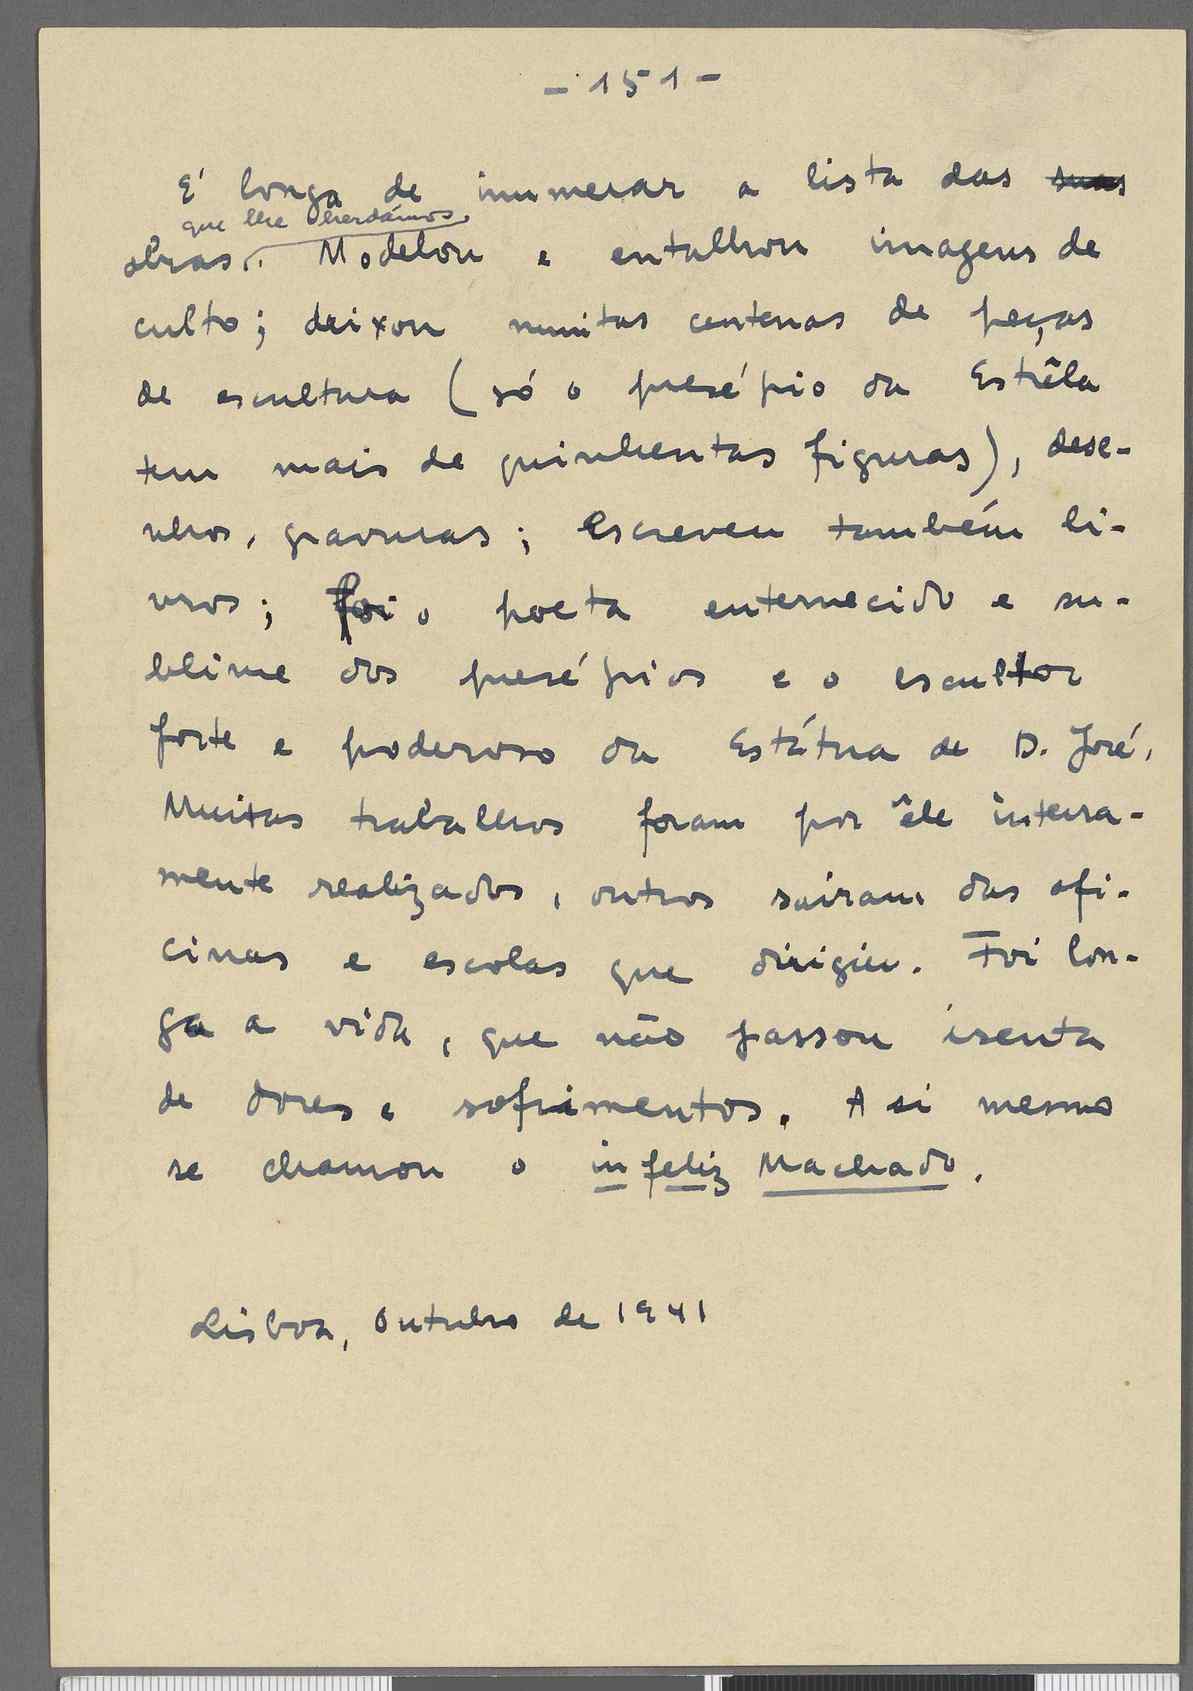 - 151 -
É longa de inumerar a lista das suas
que lhe herdámos.
obras. Modelou e entalhou imagens de
culto; deixou muitas centenas de peças
de escultura (só o presépio da Estrêla
tem mais de quinhentas figuras), dese-
nhos, gravuras; escreveu também li-
vros; foi o poeta enternecido e su-
blime dos presépios e o escultor
forte e poderoso da Estátua de D. José.
Muitas trabalhos foram por êle inteira-
mente realizados, outros sairam das ofi-
cinas e escolas que dirigiu. Foi lon-
ga a vida, que não passou isenta
de dores e sofrimentos. A si mesmo
se chamou o infeliz Machado.
Lisboa, Outubro de 1941